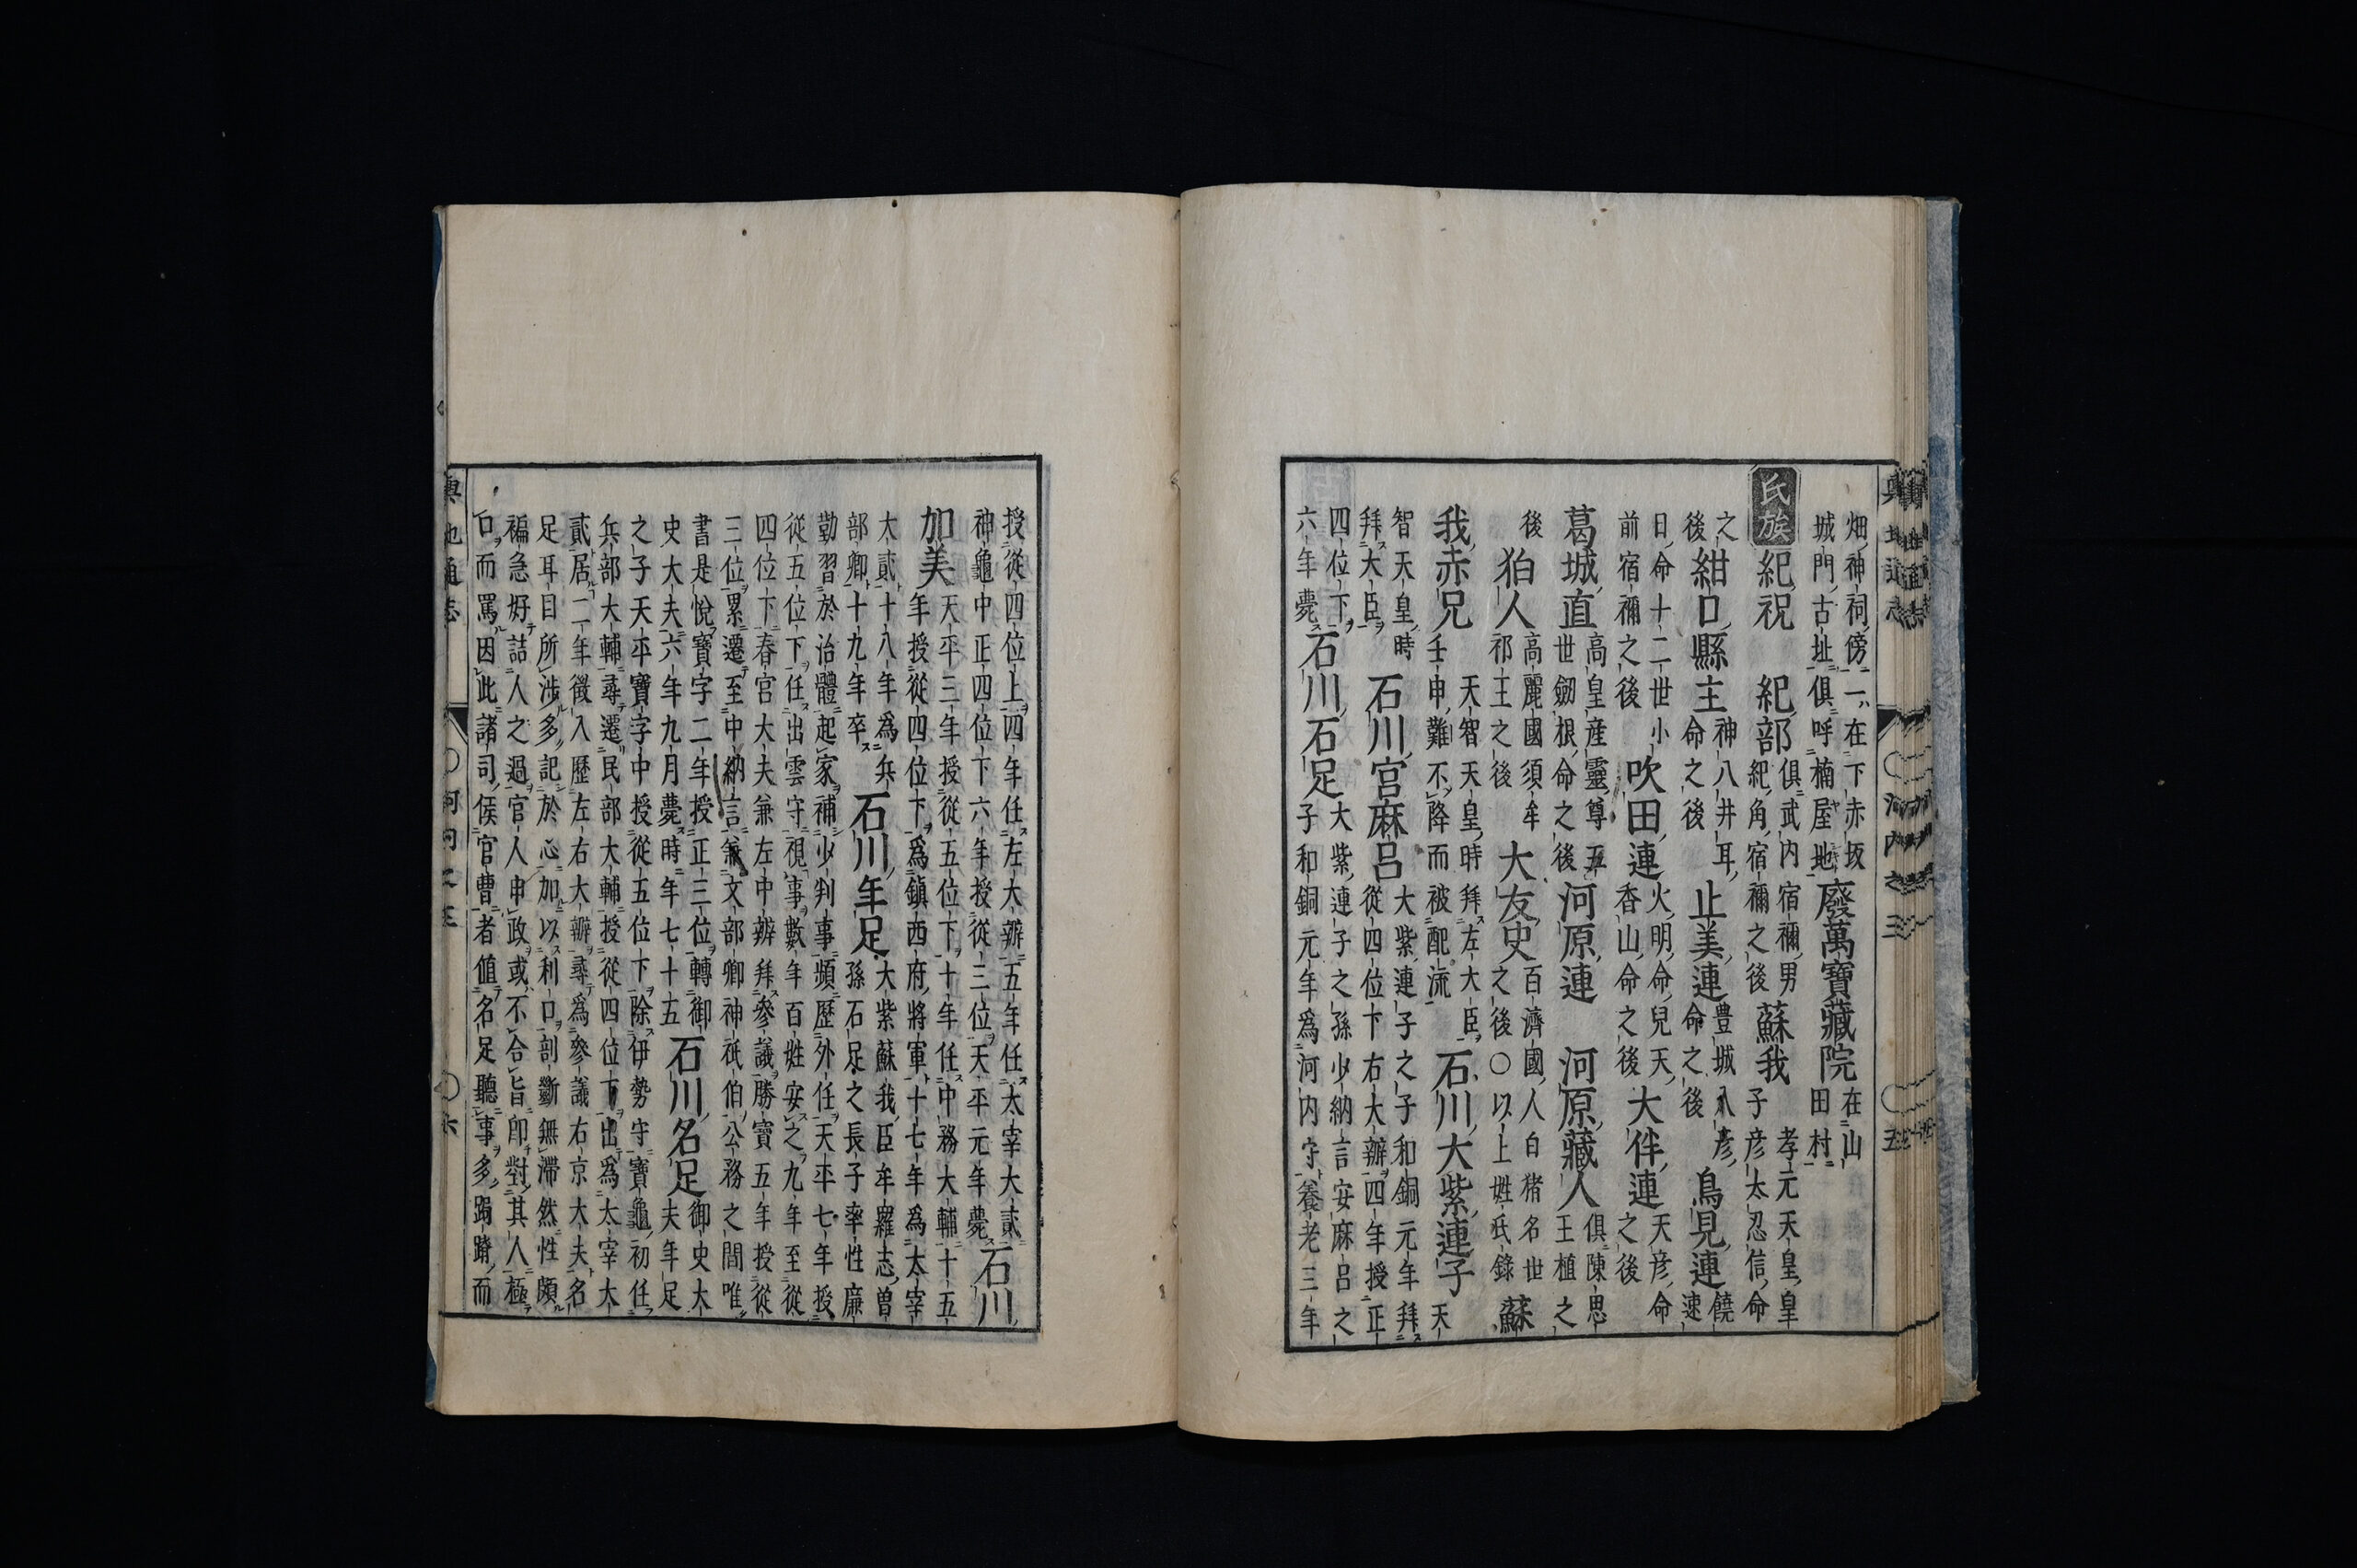 畑神祠傍一在下赤坂
城門古址俱呼楠屋地
廢萬寶藏院
在山
田村
氏族
紀祝
紀部
俱武内宿禰男
紀角宿禰之後
蘇我
孝元天皇皇
子彦太忍信命
之
後
紺口縣主
神八井耳
命之後
止美連
豊城入彦
命之後
鳥見連
饒
速
日命十二世小
前宿禰之後
吹田連
火明命兒天
香山命之後
大伴連
天彦命
之後
葛城直
高皇産靈尊五
世劔根命之後
河原連
河原藏人
俱陳思
王植之
後
狛人
高麗國須牟
祁王之後
大友史
百濟國人白猪名世
之後○以上姓氏錄
蘇
我赤兄
天智天皇時拜左大臣
壬申難不降而被配流
石川大紫連子
天
智天皇時
拜大臣
石川宮麻呂
大紫連子之子和銅元年拜
從四位下右大辨四年授正
四位下
六年薨
石川石足
大紫連子之孫少納言安麻呂之
子和銅元年爲河内守養老三年
輿地通志
○河内之三
○五
授從四位上四年任左大辨五年任太宰大貳
神龜中正四位下六年授從三位天平元年薨
石川
加美
天平三年授從五位下十年任中務大輔十五
年授從四位下爲鎭西府將軍十七年爲太宰
大貳十八年爲兵
部卿十九年卒
石川年足
大紫蘇我臣牟羅志曽
孫石足之長子率性廉
勤習於治體起家補少判事頻歷外任天平七年授
從五位下任出雲守視事數年百姓安之九年至從
四位下春宮大夫兼左中辨拜參議勝寶五年授從
三位累遷至中納言兼文部卿神祇伯公務之閒唯
書是悅寶字二年授正三位轉御史大
夫六年九月薨時年七十五
石川名足
御史大
夫年足
之子天平寶字中授從五位下除伊勢守寶龜初任
兵部大輔尋遷民部大輔授從四位下出爲太宰大
貳居二年徵入歷左右大辨尋爲參議右京大夫名
足耳目所涉多記於心加以利口剖斷無滯然性頗
褊急好詰人之過官人申政或不合旨卽對其人極
口而罵因此諸司侯官曹者値名足聽事多跼蹐而